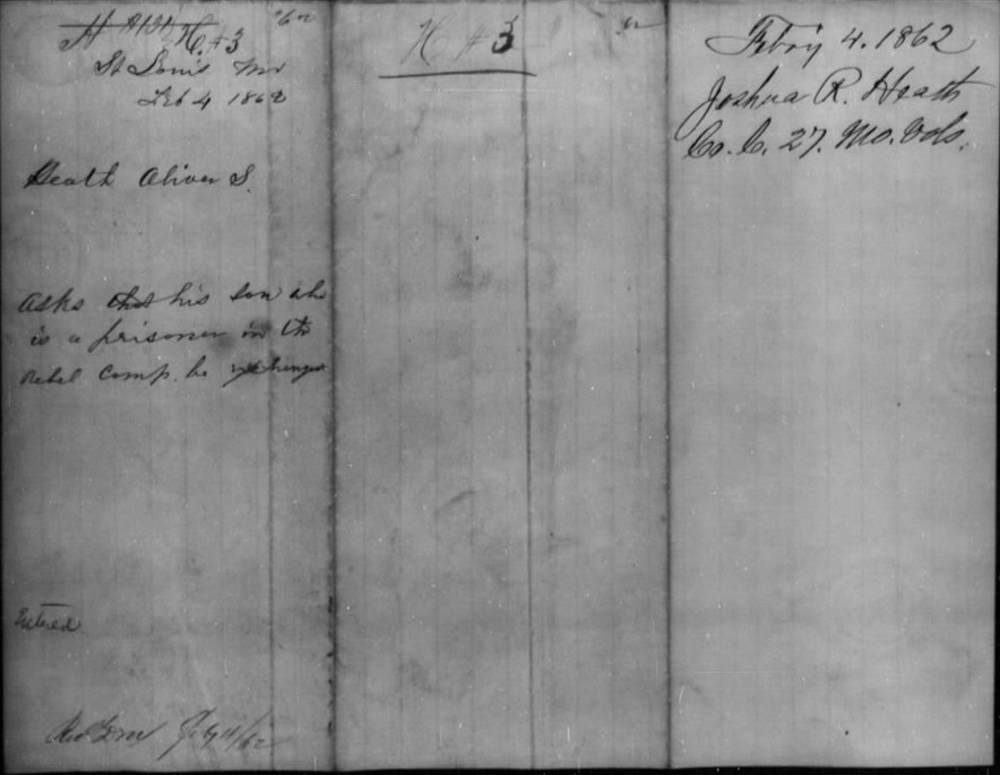 H. #3
St Louis Mo
Feb 4 1862
Heath Oliver S.
Asks that his son who
is a prisoner in the
Rebel Camp. be exchanged
Entered
Feby 11/62
H #3
Feb'y 4. 1862
Joshua R. Heath
Co. C. 27. Mo. Vols.